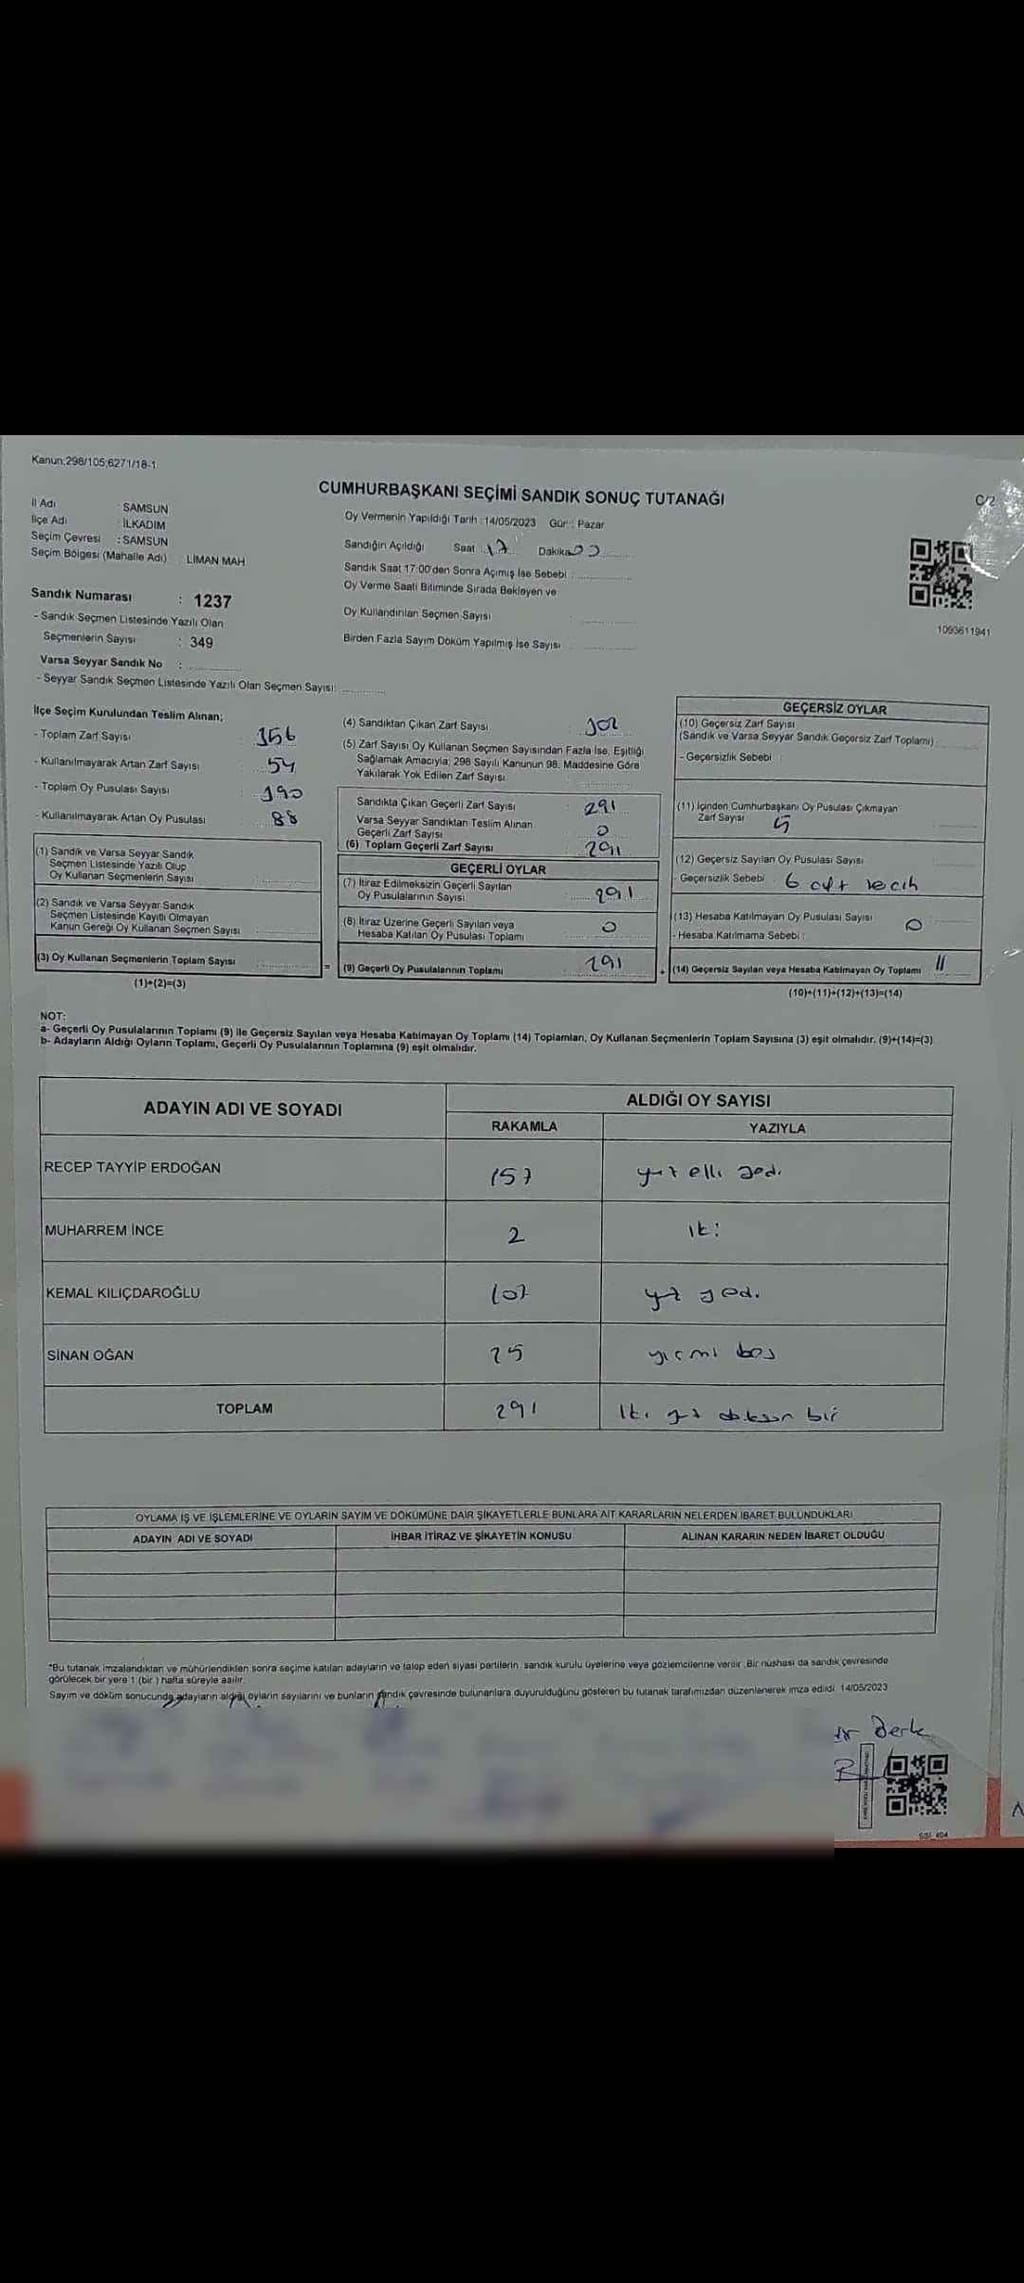 Kanun:298/105;6271/18-1
CUMHURBAŞKANI SEÇİMİ SANDIK SONUÇ TUTANAĞI
C/2
İl Adı : SAMSUN
İlçe Adı : İLKADIM
Seçim Çevresi : SAMSUN
Seçim Bölgesi (Mahalle Adı) : LİMAN MAH
Oy Vermenin Yapıldığı Tarih : 14/05/2023 Gün : Pazar
Sandığın Açıldığı Saat 17 Dakika 00
Sandık Saat 17:00'den Sonra Açımış İse Sebebi :
Oy Verme Saati Bitiminde Sırada Bekleyen ve
Oy Kullandırılan Seçmen Sayısı :
Birden Fazla Sayım Döküm Yapılmış İse Sayısı :
1093611941
Sandık Numarası : 1237
- Sandık Seçmen Listesinde Yazılı Olan
Seçmenlerin Sayısı : 349
Varsa Seyyar Sandık No :
- Seyyar Sandık Seçmen Listesinde Yazılı Olan Seçmen Sayısı:
İlçe Seçim Kurulundan Teslim Alınan;
- Toplam Zarf Sayısı : 356
- Kullanılmayarak Artan Zarf Sayısı : 54
- Toplam Oy Pusulası Sayısı : 390
- Kullanılmayarak Artan Oy Pusulası : 88
(1) Sandık ve Varsa Seyyar Sandık
Seçmen Listesinde Yazılı Olup
Oy Kullanan Seçmenlerin Sayısı
(2) Sandık ve Varsa Seyyar Sandık
Seçmen Listesinde Kayıtlı Olmayan
Kanun Gereği Oy Kullanan Seçmen Sayısı
(3) Oy Kullanan Seçmenlerin Toplam Sayısı
(1)+(2)=(3)
(4) Sandıktan Çıkan Zarf Sayısı : 302
(5) Zarf Sayısı Oy Kullanan Seçmen Sayısından Fazla İse, Eşitliği
Sağlamak Amacıyla; 298 Sayılı Kanunun 98. Maddesine Göre
Yakılarak Yok Edilen Zarf Sayısı
Sandıkta Çıkan Geçerli Zarf Sayısı : 291
Varsa Seyyar Sandıktan Teslim Alınan
Geçerli Zarf Sayısı : 0
(6) Toplam Geçerli Zarf Sayısı : 291
GEÇERLİ OYLAR
(7) İtiraz Edilmeksizin Geçerli Sayılan
Oy Pusulalarının Sayısı : 291
(8) İtiraz Üzerine Geçerli Sayılan veya
Hesaba Katılan Oy Pusulası Toplamı : 0
= (9) Geçerli Oy Pusulalarının Toplamı : 291
GEÇERSİZ OYLAR
(10) Geçersiz Zarf Sayısı
(Sandık ve Varsa Seyyar Sandık Geçersiz Zarf Toplamı)
- Geçersizlik Sebebi :
(11) İçinden Cumhurbaşkanı Oy Pusulası Çıkmayan
Zarf Sayısı 5
(12) Geçersiz Sayılan Oy Pusulası Sayısı
- Geçersizlik Sebebi : 6 çift tercih
(13) Hesaba Katılmayan Oy Pusulası Sayısı 0
- Hesaba Katılmama Sebebi :
+ (14) Geçersiz Sayılan veya Hesaba Katılmayan Oy Toplamı 11
(10)+(11)+(12)+(13)=(14)
NOT:
a- Geçerli Oy Pusulalarının Toplamı (9) ile Geçersiz Sayılan veya Hesaba Katılmayan Oy Toplamı (14) Toplamları, Oy Kullanan Seçmenlerin Toplam Sayısına (3) eşit olmalıdır. (9)+(14)=(3)
b- Adayların Aldığı Oyların Toplamı, Geçerli Oy Pusulalarının Toplamına (9) eşit olmalıdır.
ADAYIN ADI VE SOYADI
ALDIĞI OY SAYISI
RAKAMLA YAZIYLA
RECEP TAYYİP ERDOĞAN 157 yüz elli yedi
MUHARREM İNCE 2 iki
KEMAL KILIÇDAROĞLU 107 yüz yedi
SİNAN OĞAN 25 yirmi beş
TOPLAM 291 İki yüz doksan bir
OYLAMA İŞ VE İŞLEMLERİNE VE OYLARIN SAYIM VE DÖKÜMÜNE DAİR ŞİKAYETLERLE BUNLARA AİT KARARLARIN NELERDEN İBARET BULUNDUKLARI
ADAYIN ADI VE SOYADI İHBAR İTİRAZ VE ŞİKAYETİN KONUSU ALINAN KARARIN NEDEN İBARET OLDUĞU
*Bu tutanak imzalandıktan ve mühürlendikten sonra seçime katılan adayların ve talep eden siyasi partilerin, sandık kurulu üyelerine veya gözlemcilerine verilir. Bir nüshası da sandık çevresinde
görülecek bir yere 1 (bir ) hafta süreyle asılır.
Sayım ve döküm sonucunda adayların aldığı oyların sayılarını ve bunların sandık çevresinde bulunanlara duyurulduğunu gösteren bu tutanak tarafımızdan düzenlenerek imza edildi. 14/05/2023